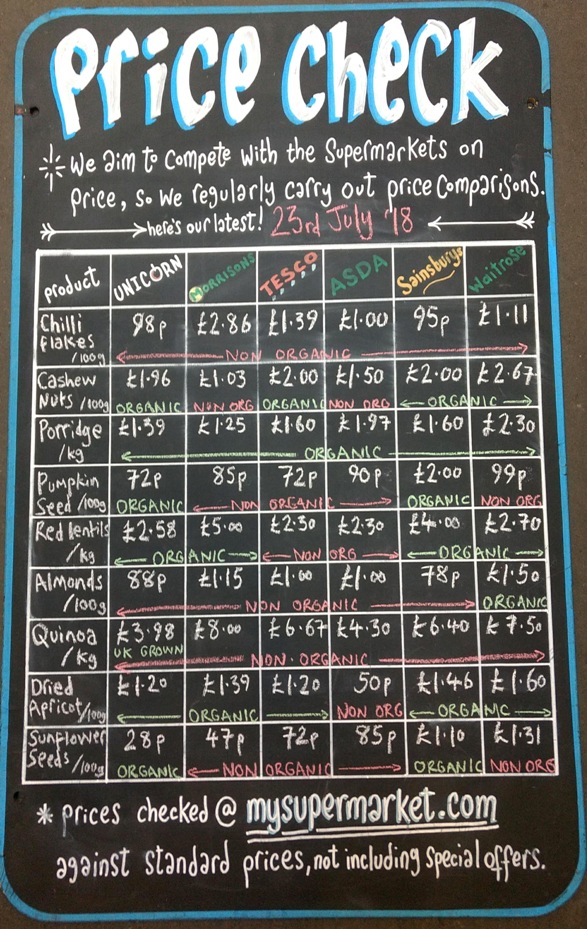 Price Check
We aim to compete with the Supermarkets on
price, so we regularly carry out price comparisons.
here's our latest! 23rd July '18
product UNICORN MORRISONS TESCO ASDA Sainsburys Waitrose
Chilli flakes /100g 98p £2.86 £1.39 £1.00 95p £1.11
NON ORGANIC
Cashew Nuts /100g £1.96 £1.03 £2.00 £1.50 £2.00 £2.67
ORGANIC NON ORG ORGANIC NON ORG ORGANIC
Porridge /kg £1.39 £1.25 £1.60 £1.97 £1.60 £2.30
ORGANIC
Pumpkin Seed /100g 72p 85p 72p 90p £2.00 99p
ORGANIC NON ORGANIC ORGANIC NON ORG
Red lentils /kg £2.58 £5.00 £2.30 £2.30 £4.00 £2.70
ORGANIC NON ORG ORGANIC
Almonds /100g 88p £1.15 £1.00 £1.00 78p £1.50
NON ORGANIC ORGANIC
Quinoa /kg £3.98 £8.00 £6.67 £4.30 £6.40 £7.50
UK GROWN
NON-ORGANIC
Dried Apricot /100g £1.20 £1.39 £1.20 50p £1.46 £1.60
ORGANIC NON ORG ORGANIC
Sunflower Seeds /100g 28p 47p 72p 85p £1.10 £1.31
ORGANIC NON ORGANIC ORGANIC NON ORG
* prices checked @ mysupermarket.com
against standard prices, not including special offers.